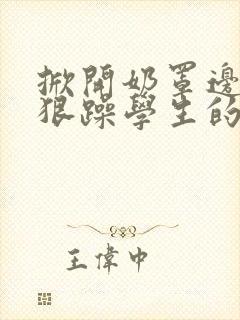 掀開奶罩邊
狠躁學生的
王偉中